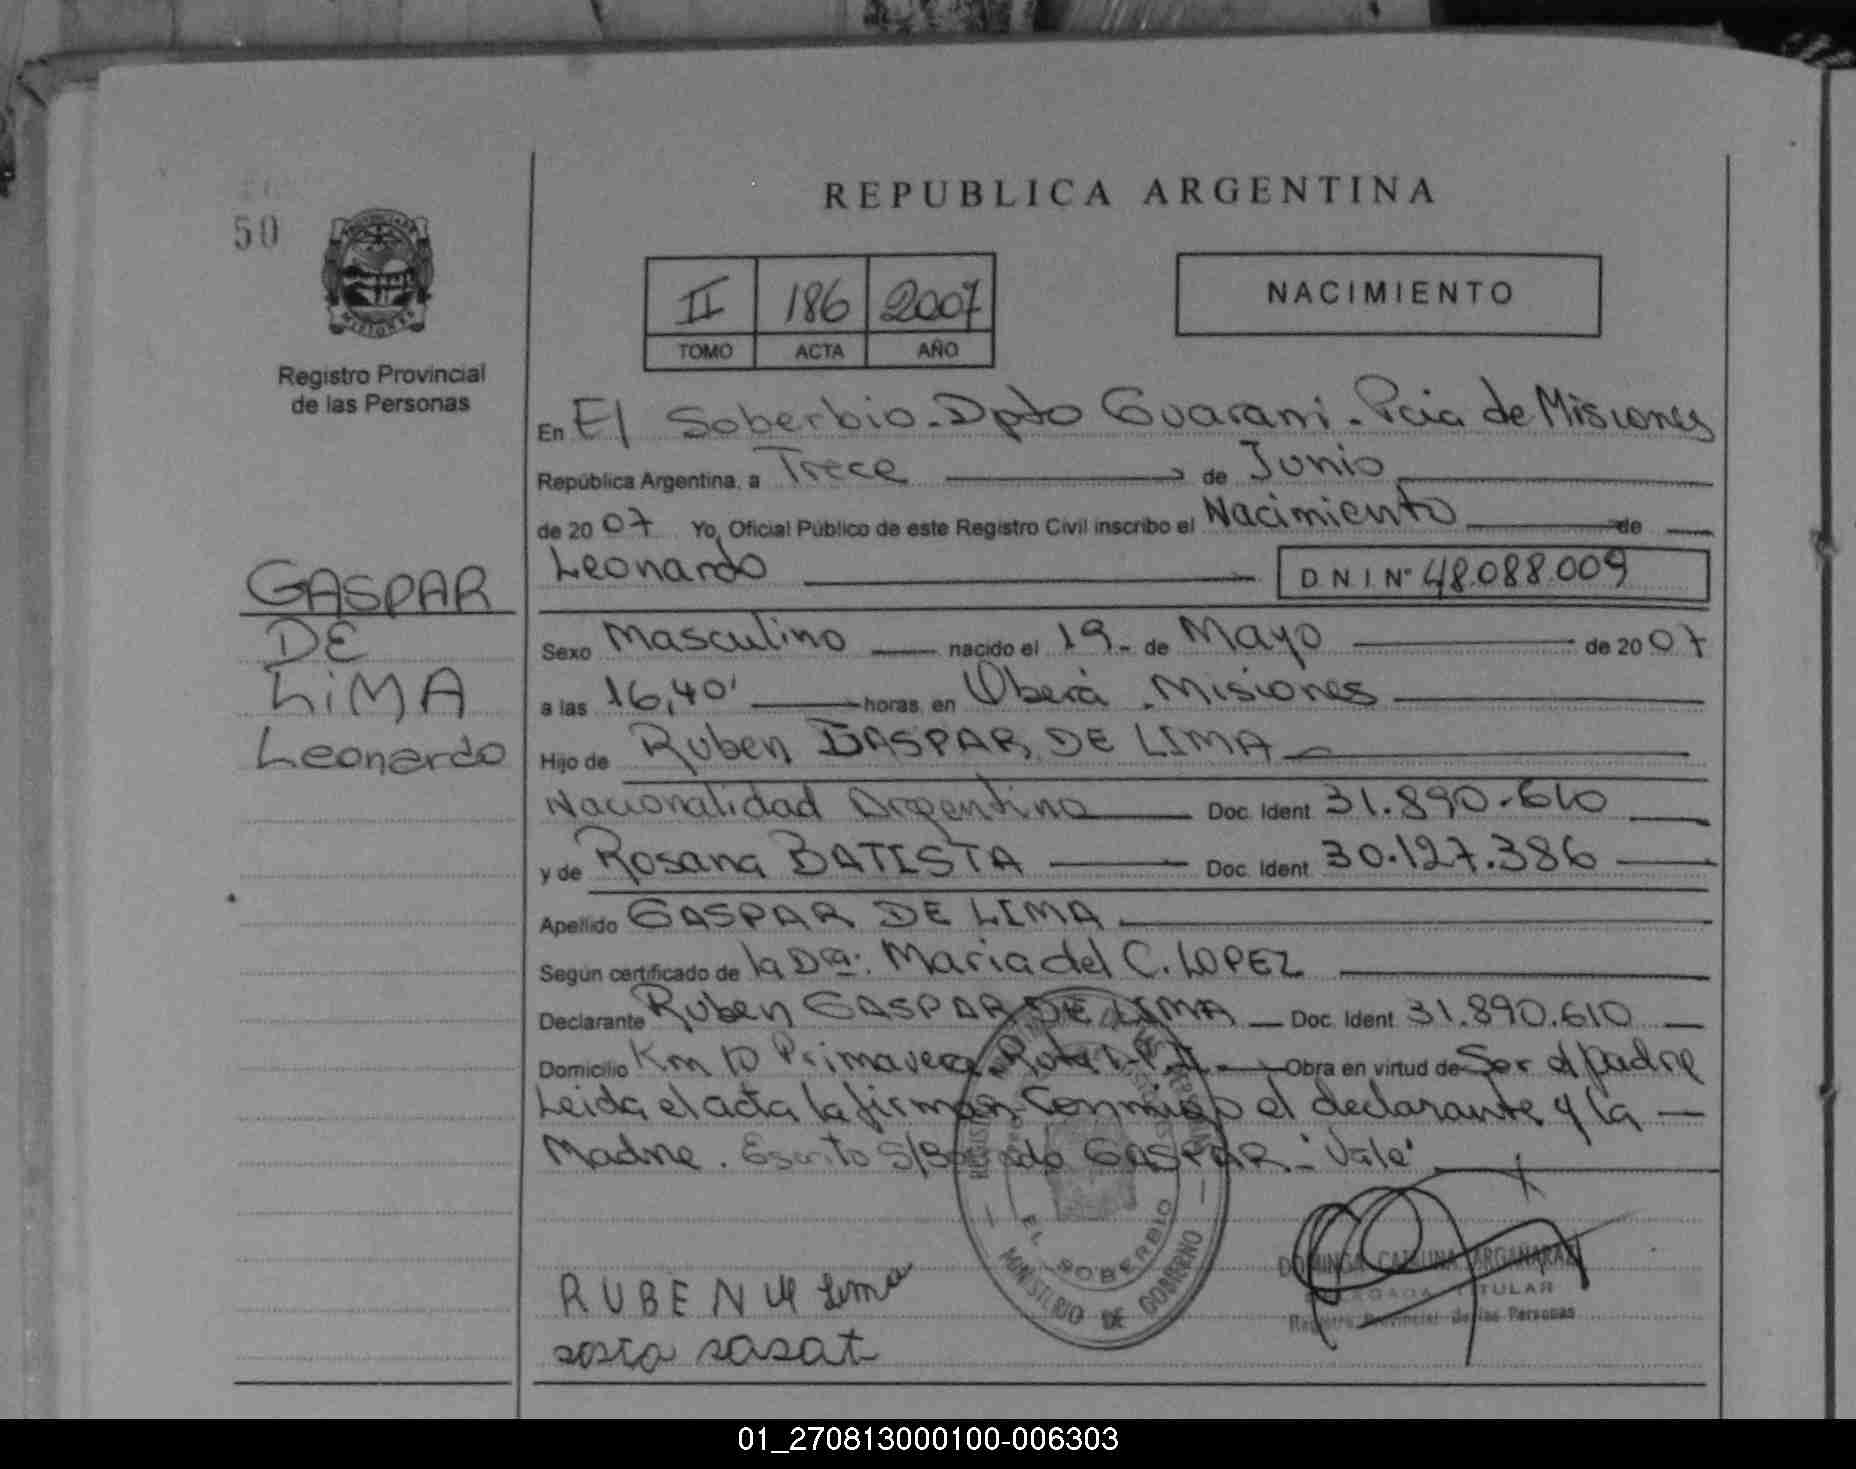 50
REPUBLICA ARGENTINA
MISIONES
Registro Provincial
de las Personas
II 186 2007
TOMO ACTA AÑO
NACIMIENTO
En El Soberbio - Dpto Guarani - Pcia de Misiones
República Argentina, a Trece de Junio
de 20 07 Yo, Oficial Público de este Registro Civil inscribo el Nacimiento de
Leonardo D.N.I. Nº 48.088.009
GASPAR
DE
LiMA
Leonardo
Sexo Masculino nacido el 19 - de Mayo de 20 07
a las 16,40' horas, en Oberá - Misiones
Hijo de Ruben GASPAR DE LIMA
Nacionalidad Argentina Doc. Ident. 31.890.610
y de Rosana BATISTA Doc. Ident. 30.127.386
Apellido GASPAR DE LIMA
Según certificado de la Dra: Maria del C. LOPEZ
Declarante Ruben GASPAR DE LIMA Doc. Ident. 31.890.610
Domicilio Km 10 Primavera Ruta Obra en virtud de Ser el padre
Leida el acta la firman Conmigo el declarante y la
Madre. Escrito S/Borrado GASPAR - "Vale"
EL SOBERBIO
MINISTERIO DE GOBIERNO
DOMINGA CATALINA ARGAÑARAZ
DELEGADA TITULAR
Registro Provincial de las Personas
RUBEN Lima
01_270813000100-006303